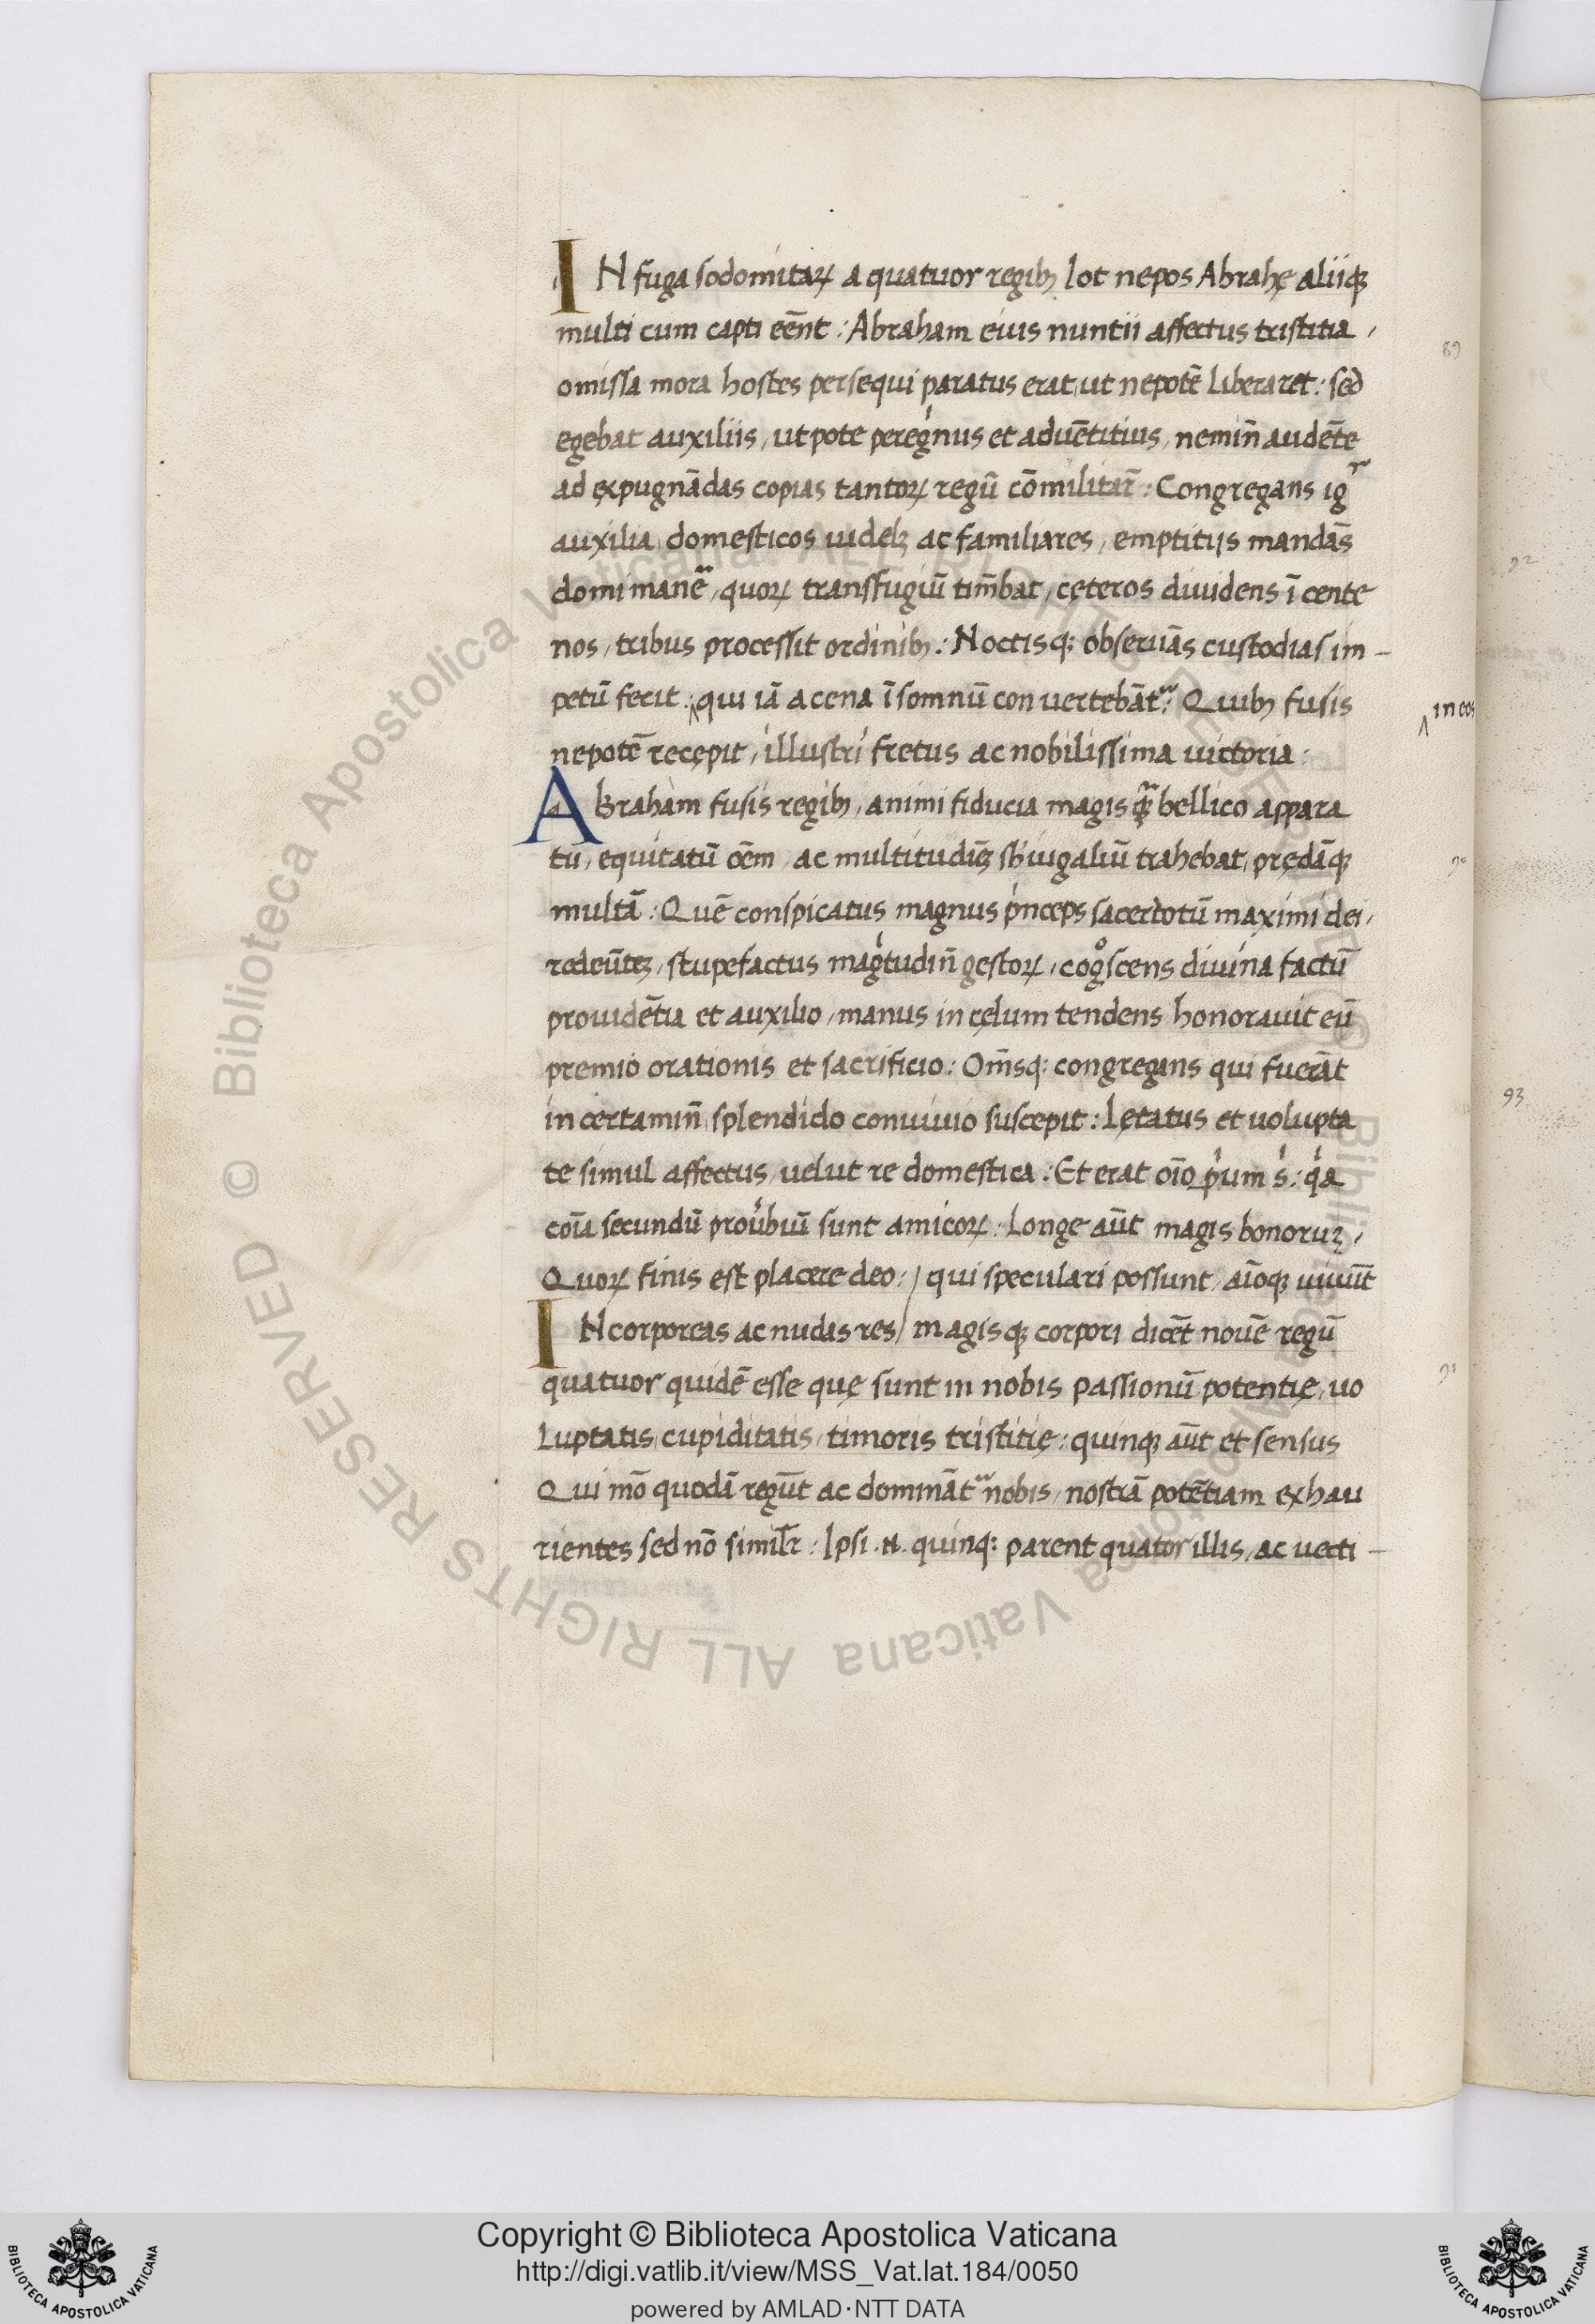 IN fuga sodomitaꝝ a quatuor regibꝫ lot nepos Abrahę aliiqꝫ
multi cum capti eēnt : Abraham eius nuntii affectus tristitia ,
omissa mora hostes persequi paratus erat, ut nepotē liberaret : sed
egebat auxiliis, ut pote peregͥnus et aduētitius, nemin̄ audēte
ad expugnādas copias tantoꝝ regū cōmilitar̄ : Congregans igͬ
auxilia, domesticos uidelꝫ ac familiares, emptitijs mandās
domi manē, quoꝝ transfugiū tim̄bat, cęteros diuidens ī cente
nos, tribus processit ordinibꝫ : Noctisqꝫ obseruās custodias im-
petū fecit : qui iā a cena ī somnū conuertebāt᷑ : Quibꝫ fusis
in eos
nepotē recępit, illustri fretus ac nobilissima uictoria :
Abraham fusis regibꝫ, animi fiducia magis qᷓꝫ bellico appara
tū, equitatū oēm, ac multitudiēꝫ sb̓iugaliū trahebat, prędāqꝫ
multā : Quē conspicatus magnus pͥnceps sacerdotū maximi dei,
redeūteꝫ, stupefactus magͥtudin̄ gestoꝝ, cogͦscens diuina factū
prouidētia et auxilio, manus in cęlum tendens honorauit eū
premio orationis et sacrificio : Om̄sqꝫ congregans qui fuerāt
in certamin̄, splendido conuiuio suscepit : Lętatus et uolupta
te simul affectus, uelut re domestica : Et erat oīo pͥum sͥ : qͥa
coīa secundū prou̓biū sunt amicoꝝ : Longe aūt magis bonoruꝫ,
Quoꝝ finis est placere deo : / qui speculari possunt, aīoqꝫ uiuūt
INcorporeas ac nudas res / magisqꝫ corpori dicēt nouē regū
quatuor quidē esse quę sunt in nobis passionū potentię, uo
luptatis, cupiditatis, timoris tristitię : quinqꝫ aūt et sensus
Qui mō quodā regūt ac domināt᷑ nobis, nostrā potētiam exhau
rientes sed nō simil̄r : Ipsi .n. quinqꝫ parent quator illis, ac uecti -
89
90
91
92
93
© Biblioteca Apostolica Vaticana ALL RIGHTS RESERVED
Copyright © Biblioteca Apostolica Vaticana
http://digi.vatlib.it/view/MSS_Vat.lat.184/0050
powered by AMLAD·NTT DATA
BIBLIOTECA APOSTOLICA VATICANA
BIBLIOTECA APOSTOLICA VATICANA